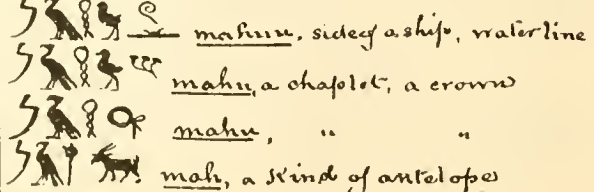 mahuu, side of a ship, water line
mahu, a chaplet, a crown
mahu, " "
mah, a kind of antelope